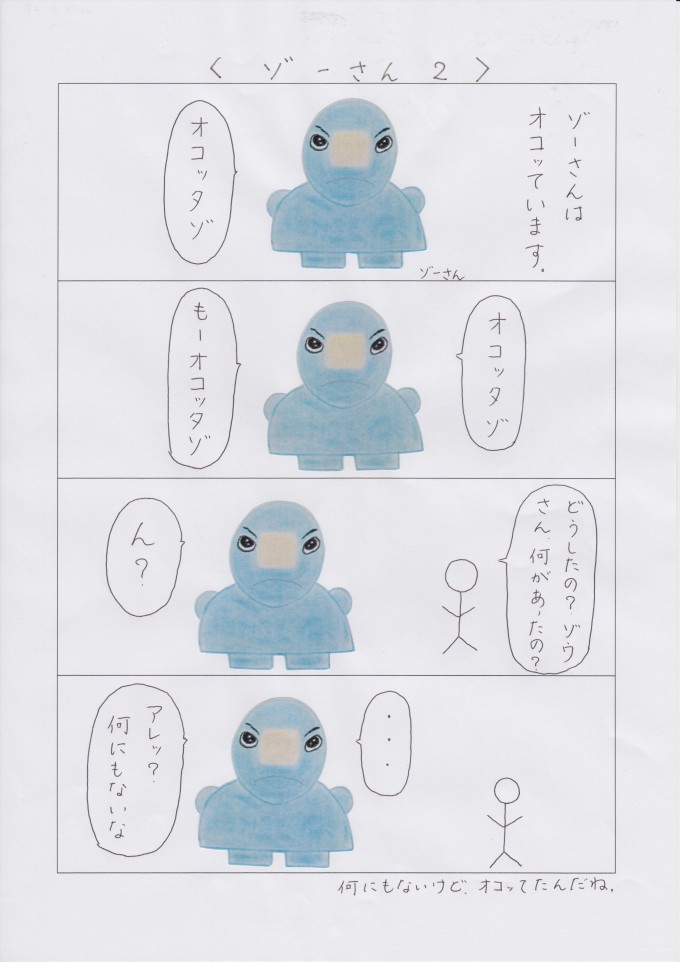 〈 ゾーさん 2 〉
ゾーさんは
オコッています。
オコッタゾ
ゾーさん
オコッタゾ
もーオコッタゾ
どうしたの？ゾウ
さん、何があったの？
ん？
・・・
アレッ？
何にもないな
何にもないけど、オコッてたんだね。